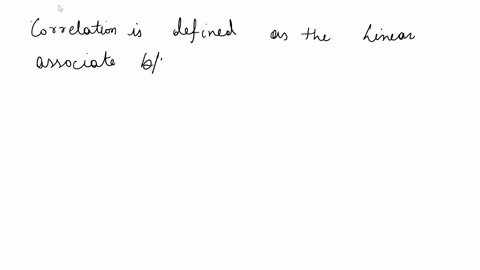 Correlation is defined as the Linear
associate b/